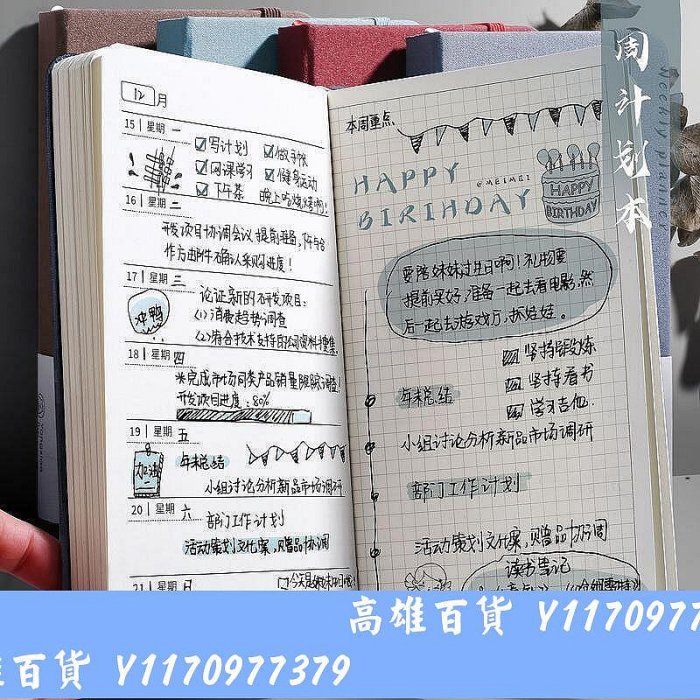 周计划本
weekly planner
12月
15 星期 一
☑写计划 ☑做手帐
☑网课学习 ☑健身运动
☑下午茶 晚上吃烧烤啊!
16 星期 二
开发项目协调会议 提前准备, 下午与合
作方由邮件确认采购进度!
17 星期 三
冲鸭
论证新的研发项目:
(1)消费趋势调查
(2)有合技术支持的公司资料收集.
18 星期 四
※完成市场同类产品销量跟踪调查!
开发项目进度: 80%
19 星期 五
加油
年末总结
小组讨论分析新品市场调研
20 星期 六
部门工作计划
活动策划文化案, 赠品协调
21 星期 日
本周重点
HAPPY
@MEIMEI
BIRIHDAY
HAPPY
BIRTHDAY
要陪妹妹过生日啊! 礼物要
提前买好, 准备一起去看电影, 然
后一起去游戏厅, 抓娃娃.
坚持锻炼
坚持看书
学习吉他.
年末总结
小组讨论分析新品市场调研
部门工作计划
活动策划文化案, 赠品协调
读书笔记
高雄百貨 Y117097
雄百貨 Y1170977379